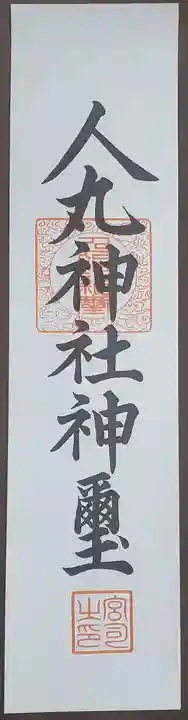 人丸神社神璽
宮司之印